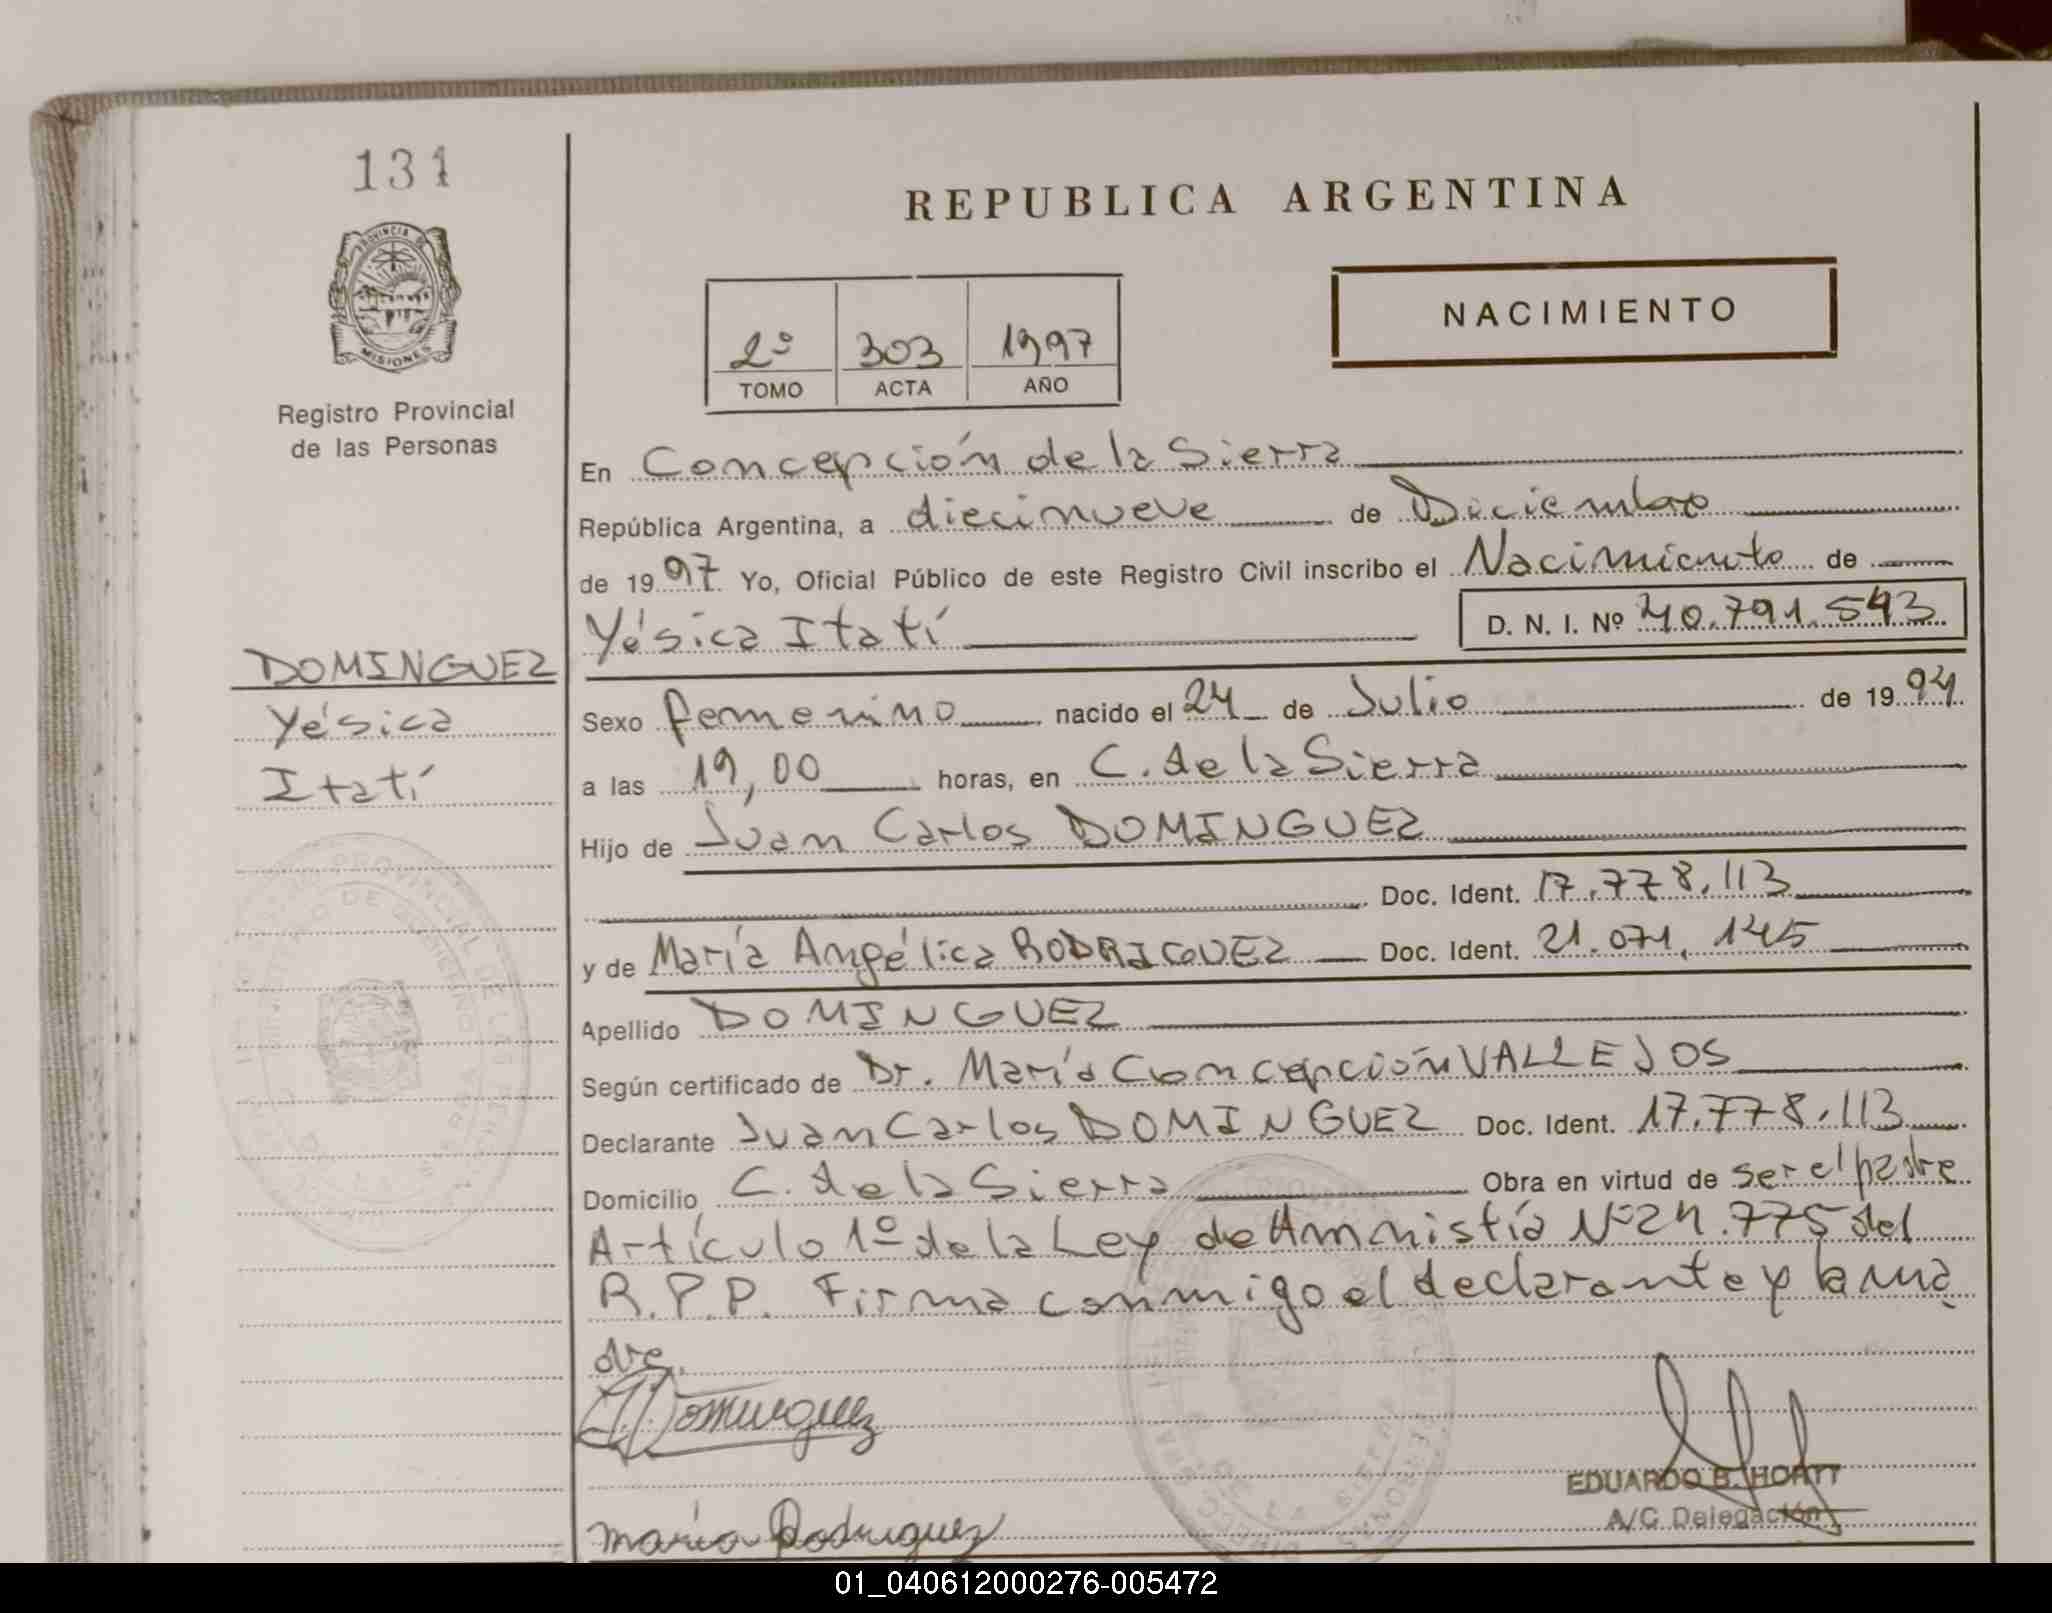 131
PROVINCIA DE
MISIONES
Registro Provincial
de las Personas
REPUBLICA ARGENTINA
2º 303 1997
TOMO ACTA AÑO
NACIMIENTO
En Concepción de la Sierra
República Argentina, a diecinueve de Diciembre
de 1997 Yo, Oficial Público de este Registro Civil inscribo el Nacimiento de
Yésica Itatí D. N. I. Nº 40.791.543
DOMINGUEZ
Yésica
Itatí
Sexo femenino nacido el 24 de Julio de 1994
a las 19,00 horas, en C. de la Sierra
Hijo de Juan Carlos DOMINGUEZ
Doc. Ident. 17.778.113
y de María Angélica RODRIGUEZ Doc. Ident. 21.071.145
Apellido DOMINGUEZ
Según certificado de Dr. María Concepción VALLEJOS
Declarante Juan Carlos DOMINGUEZ Doc. Ident. 17.778.113
Domicilio C. de la Sierra Obra en virtud de ser el padre
Artículo 1º de la Ley de Amnistía Nº 24.775 del
R.P.P. Firma conmigo el declarante y la ma
dre.
Dominguez
maria Rodriguez
EDUARDO B. HORTT
A/C Delegación
01_040612000276-005472